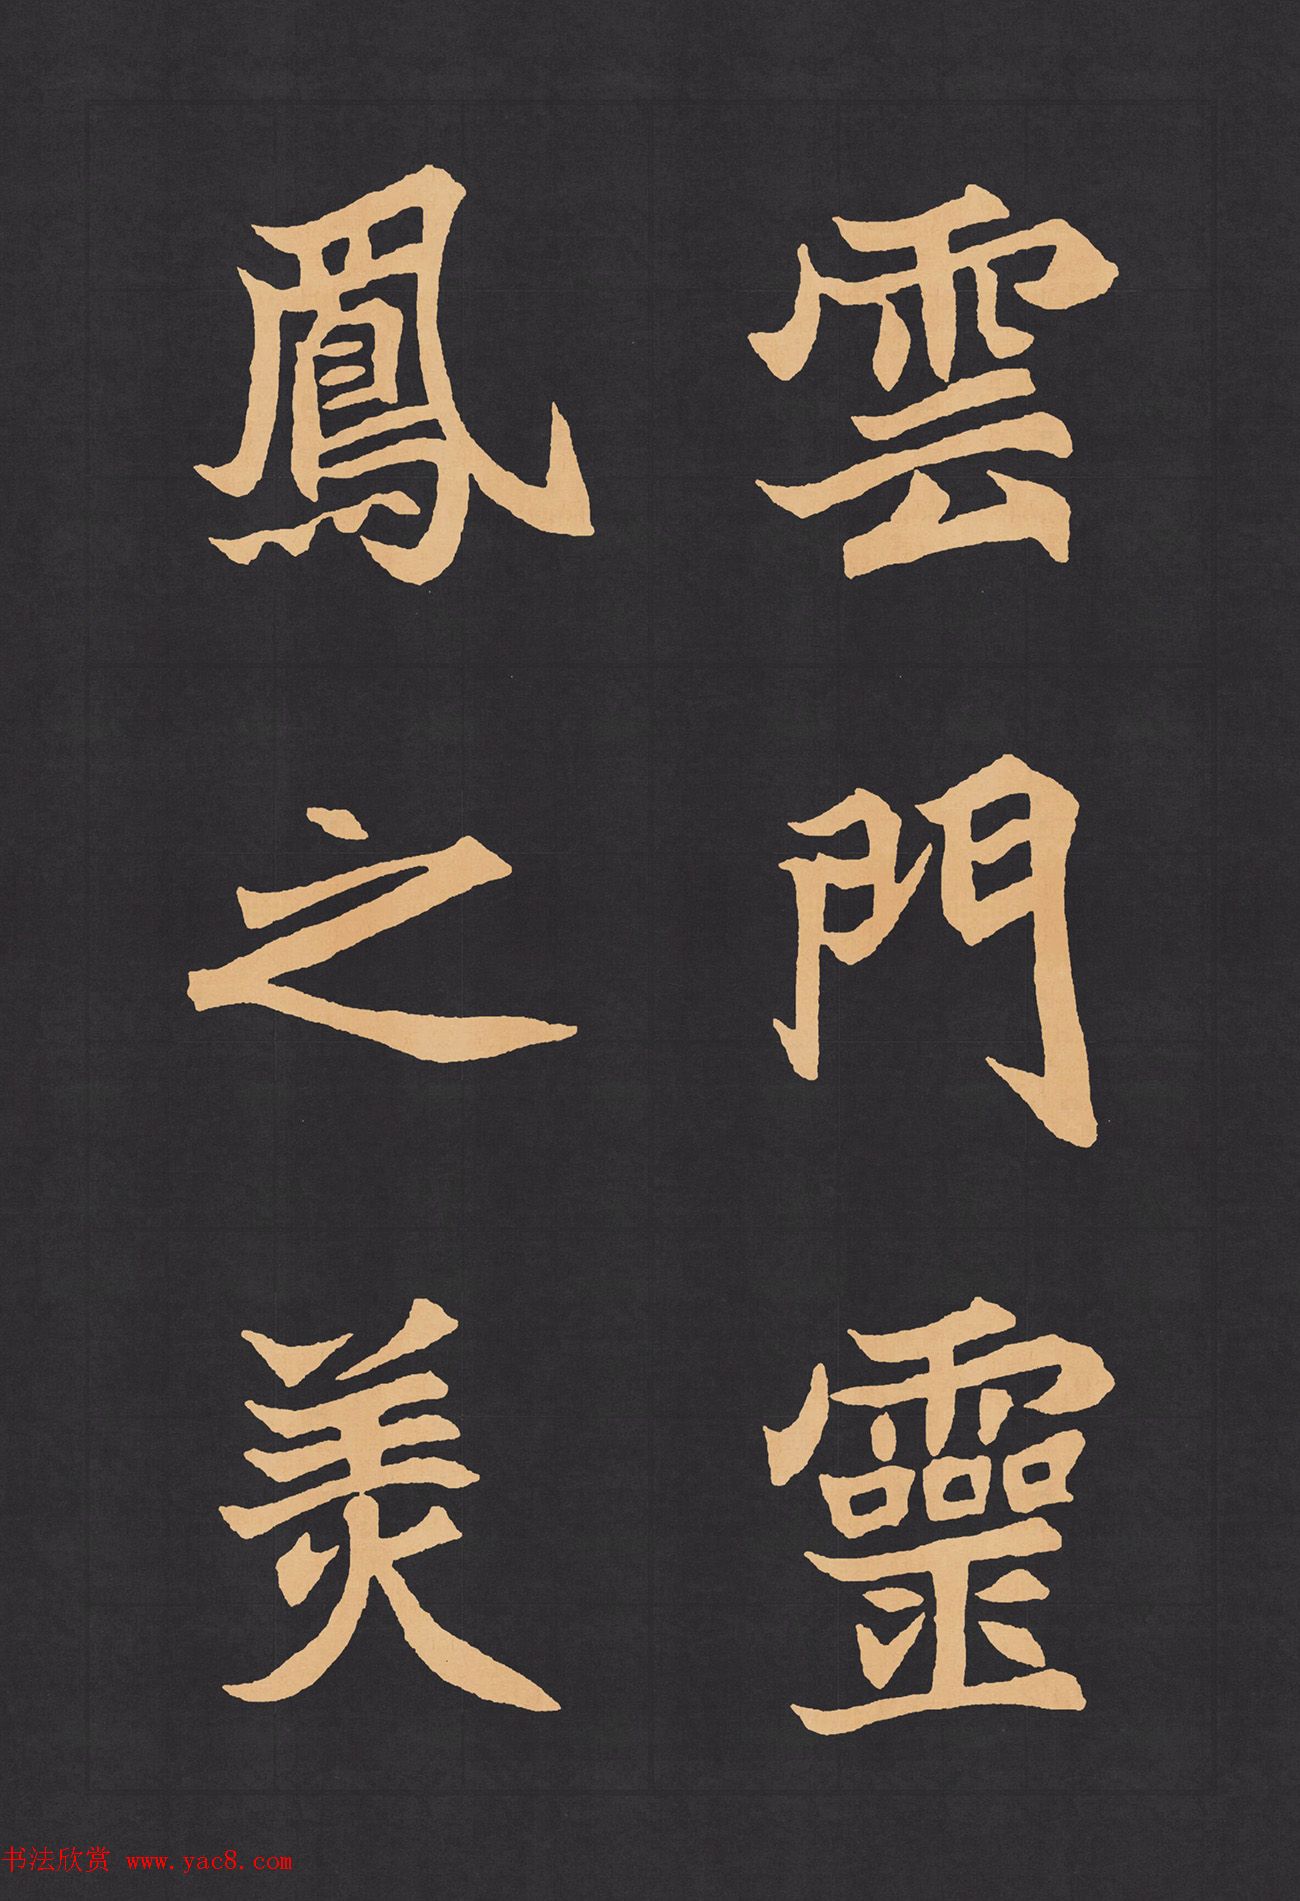 雲門靈
鳳之美
书法欣赏 www.yac8.com